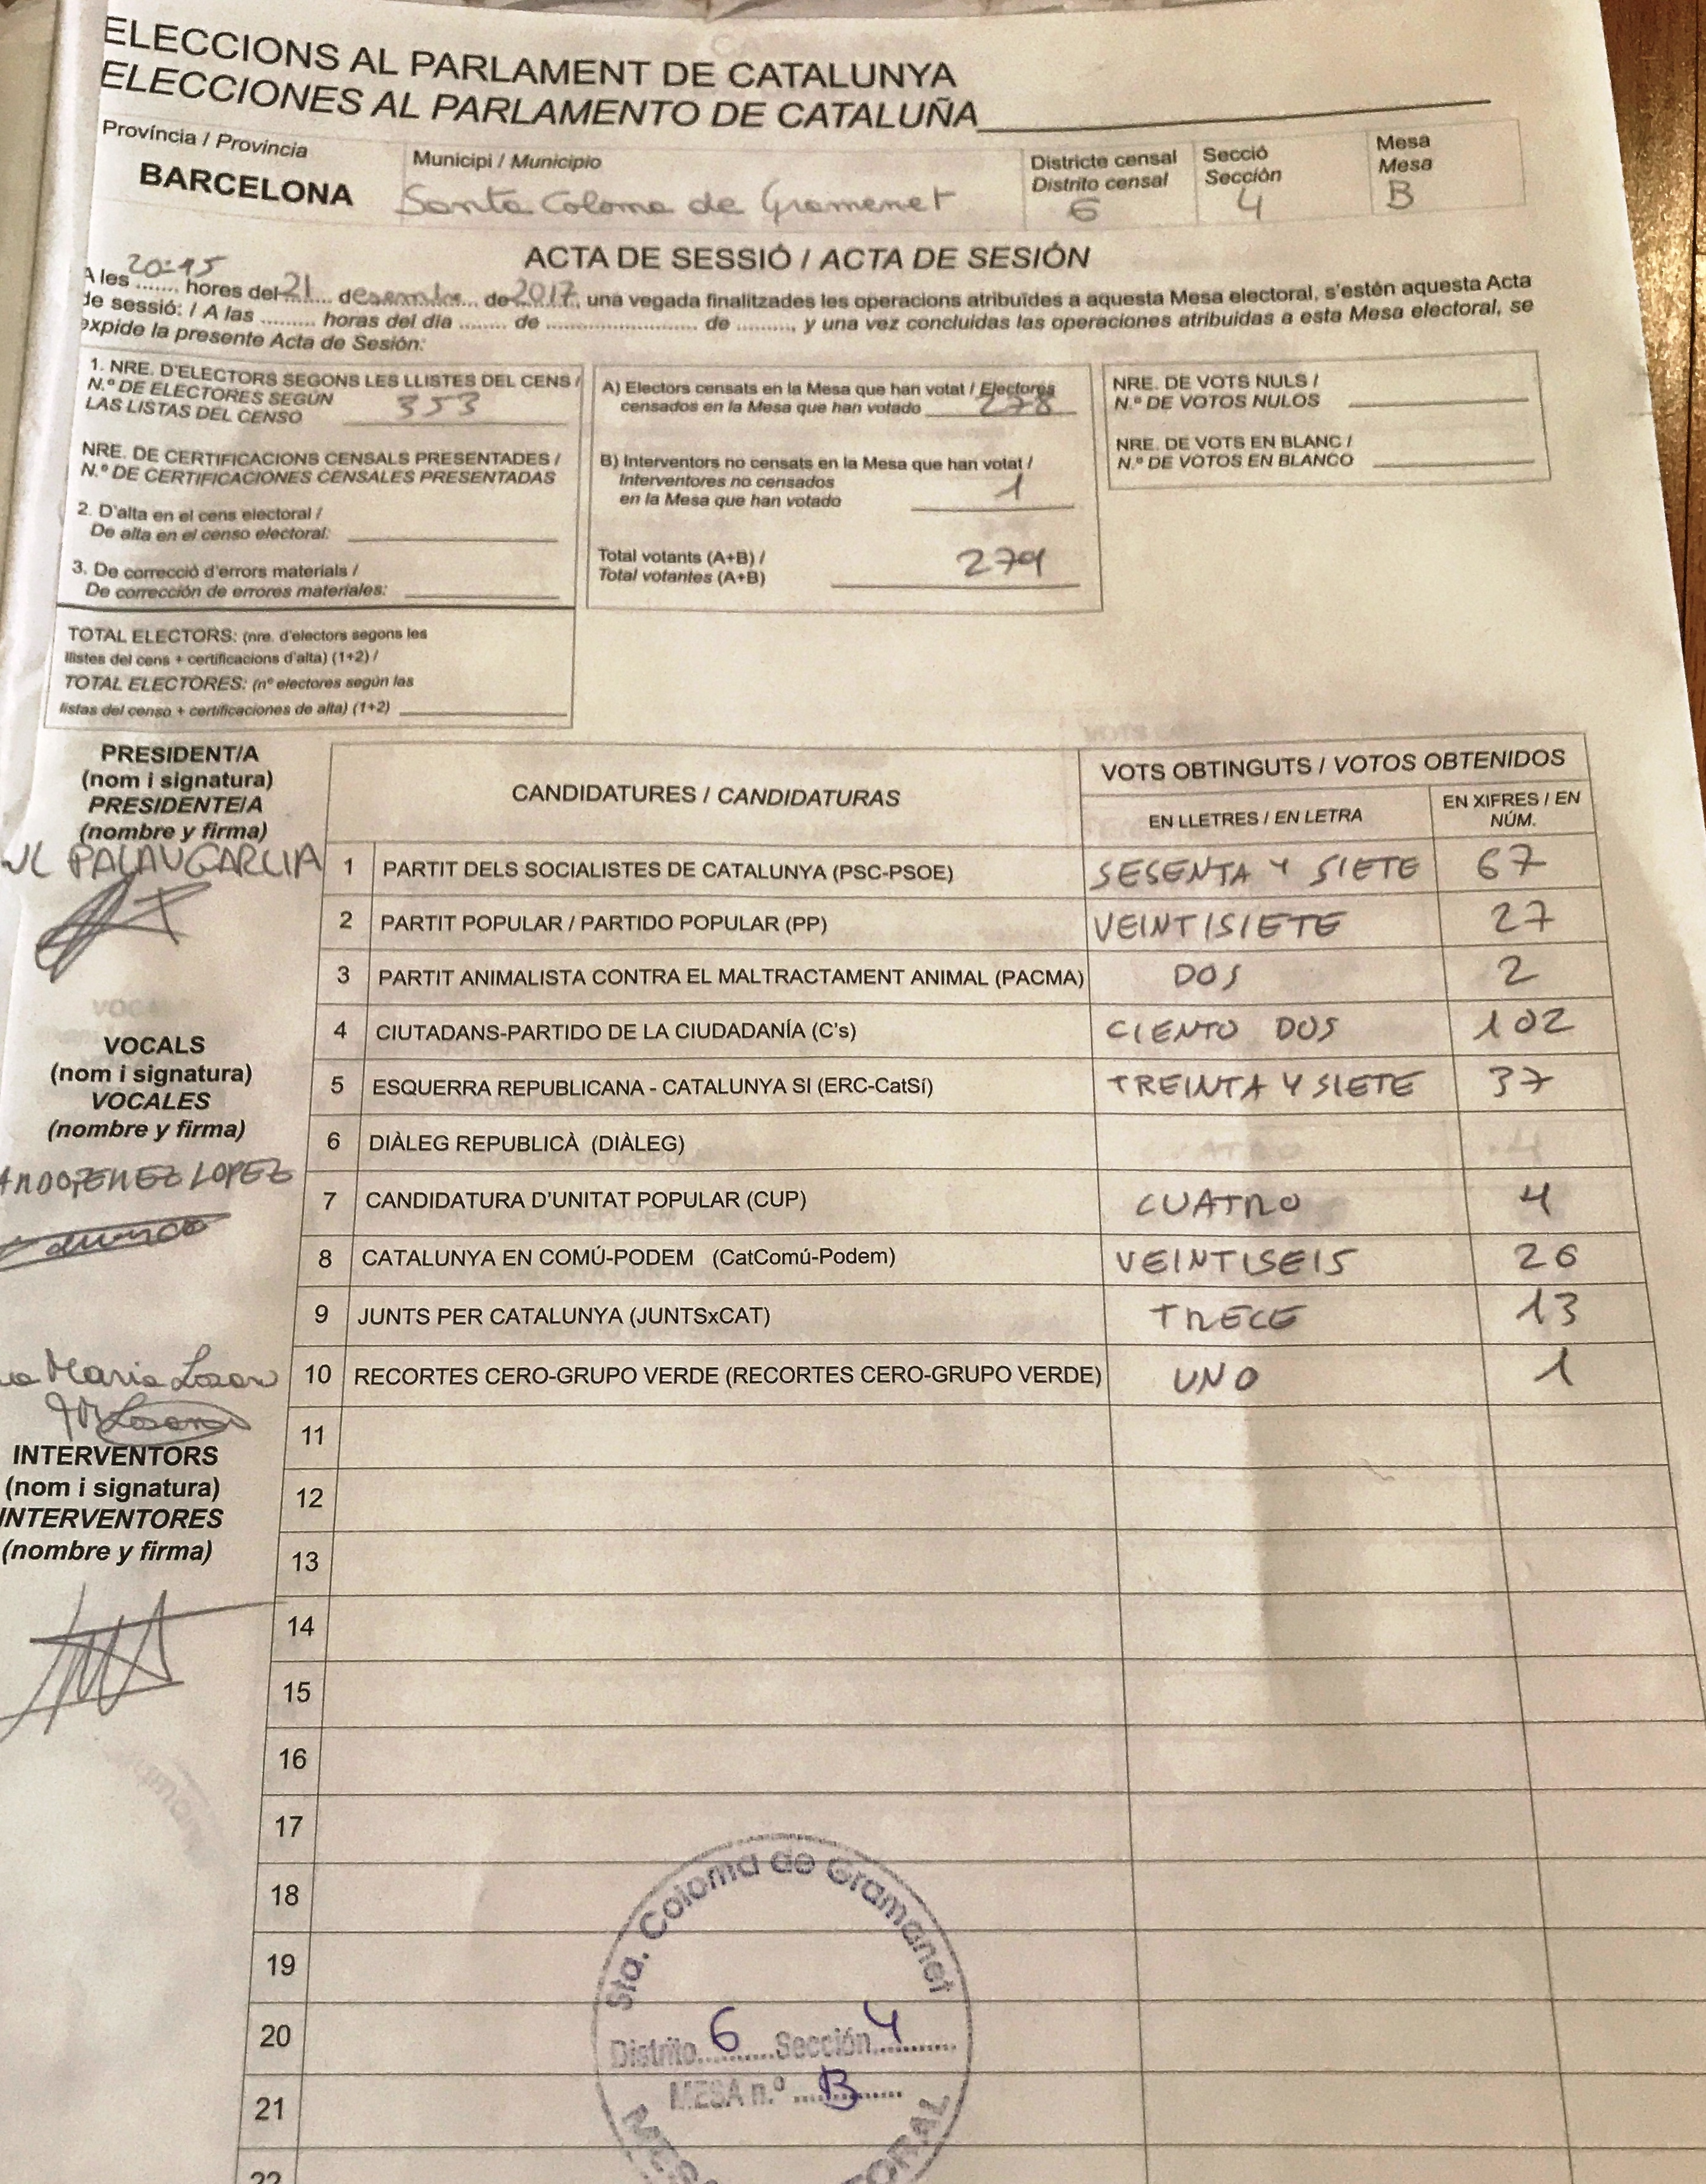 ELECCIONS AL PARLAMENT DE CATALUNYA
ELECCIONES AL PARLAMENTO DE CATALUÑA
Província / Provincia
BARCELONA
Municipi / Municipio
Santa Coloma de Gramenet
Districte censal
Distrito censal
6
Secció
Sección
4
Mesa
Mesa
B
ACTA DE SESSIÓ / ACTA DE SESIÓN
A les 20:15 hores del 21 desembre de 2017, una vegada finalitzades les operacions atribuïdes a aquesta Mesa electoral, s'estén aquesta Acta
de sessió: / A las ......... horas del día ........ de .......................... de .........., y una vez concluidas las operaciones atribuidas a esta Mesa electoral, se
expide la presente Acta de Sesión:
1. NRE. D'ELECTORS SEGONS LES LLISTES DEL CENS /
N.º DE ELECTORES SEGÚN
LAS LISTAS DEL CENSO 353
NRE. DE CERTIFICACIONS CENSALS PRESENTADES /
N.º DE CERTIFICACIONES CENSALES PRESENTADAS
2. D'alta en el cens electoral /
De alta en el censo electoral:
3. De correcció d'errors materials /
De corrección de errores materiales:
TOTAL ELECTORS: (nre. d'electors segons les
llistes del cens + certificacions d'alta) (1+2) /
TOTAL ELECTORES: (nº electores según las
listas del censo + certificaciones de alta) (1+2)
A) Electors censats en la Mesa que han votat / Electores
censados en la Mesa que han votado 278
B) Interventors no censats en la Mesa que han votat /
Interventores no censados
en la Mesa que han votado 1
Total votants (A+B) /
Total votantes (A+B) 279
NRE. DE VOTS NULS /
N.º DE VOTOS NULOS
NRE. DE VOTS EN BLANC /
N.º DE VOTOS EN BLANCO
PRESIDENT/A
(nom i signatura)
PRESIDENTE/A
(nombre y firma)
PALAU GARCIA
VOCALS
(nom i signatura)
VOCALES
(nombre y firma)
LOPEZ
Maria
INTERVENTORS
(nom i signatura)
INTERVENTORES
(nombre y firma)
CANDIDATURES / CANDIDATURAS
VOTS OBTINGUTS / VOTOS OBTENIDOS
EN LLETRES / EN LETRA
EN XIFRES / EN
NÚM.
1 PARTIT DELS SOCIALISTES DE CATALUNYA (PSC-PSOE) SESENTA Y SIETE 67
2 PARTIT POPULAR / PARTIDO POPULAR (PP) VEINTISIETE 27
3 PARTIT ANIMALISTA CONTRA EL MALTRACTAMENT ANIMAL (PACMA) DOS 2
4 CIUTADANS-PARTIDO DE LA CIUDADANÍA (C's) CIENTO DOS 102
5 ESQUERRA REPUBLICANA - CATALUNYA SI (ERC-CatSí) TREINTA Y SIETE 37
6 DIÀLEG REPUBLICÀ (DIÀLEG)
7 CANDIDATURA D'UNITAT POPULAR (CUP) CUATRO 4
8 CATALUNYA EN COMÚ-PODEM (CatComú-Podem) VEINTISEIS 26
9 JUNTS PER CATALUNYA (JUNTSxCAT) TRECE 13
10 RECORTES CERO-GRUPO VERDE (RECORTES CERO-GRUPO VERDE) UNO 1
11
12
13
14
15
16
17
18
19
20
21
22
Sta. Coloma de Gramanet
Distrito 6 Sección 4
MESA n.º B